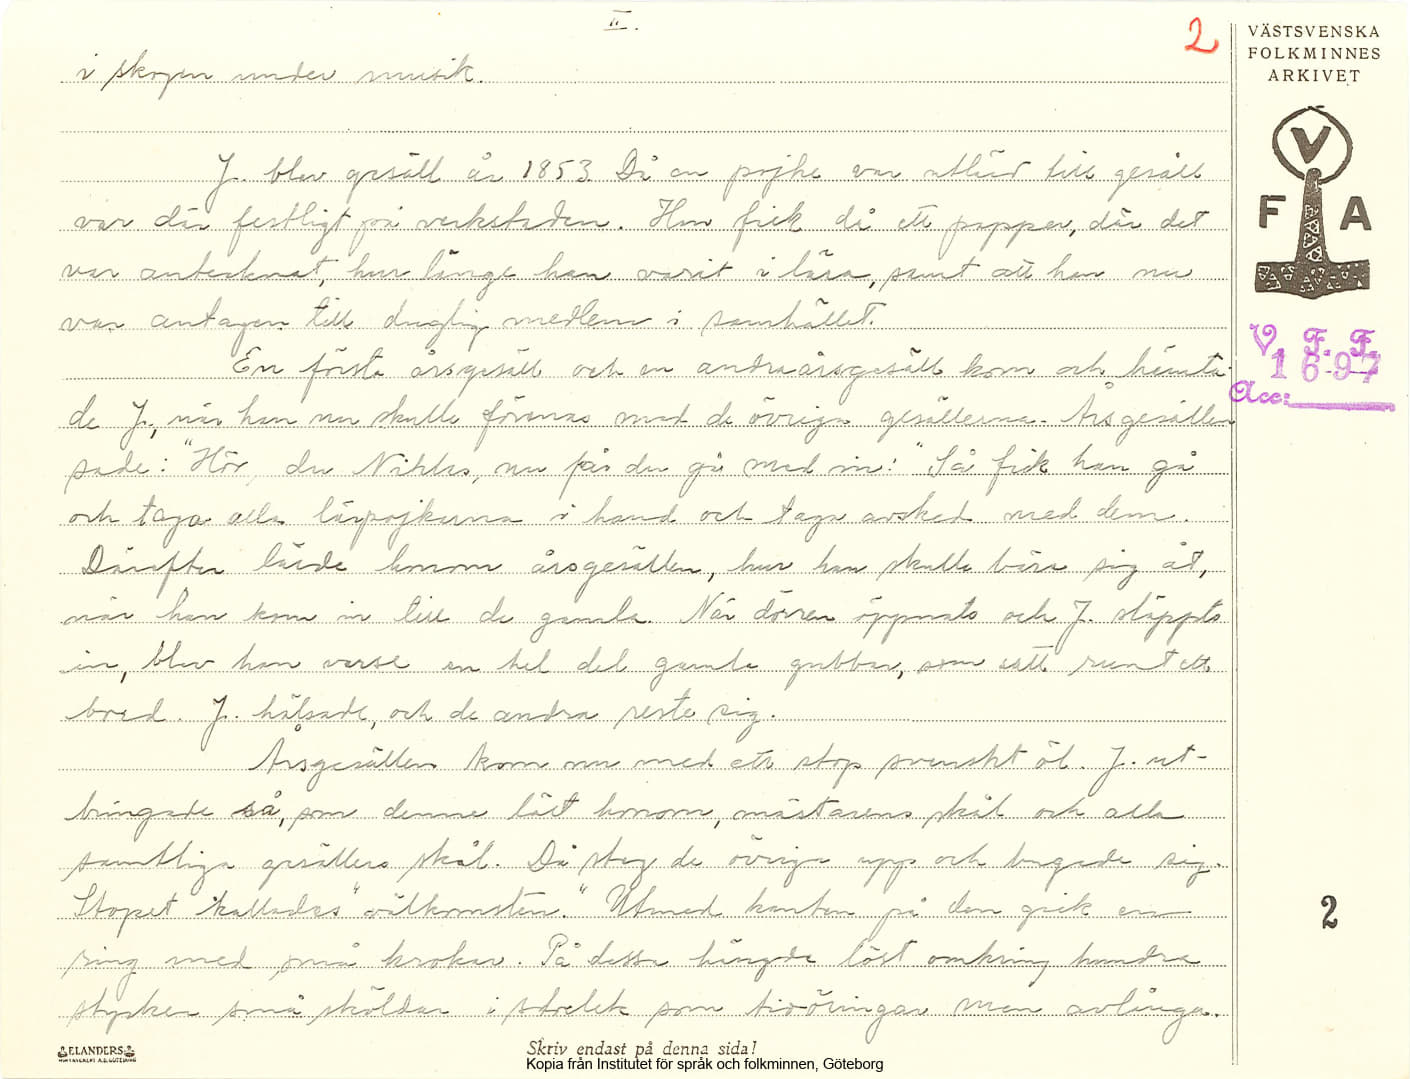 II.
2
VÄSTSVENSKA
FOLKMINNES
ARKIVET
i skogen under musik.
J. blev gesäll år 1853. Då en pojke var utlärd till gesäll
var där festligt på verkstaden. Han fick då ett papper, där det
var antecknat, hur länge han varit i lära, samt att han nu
var antagen till duglig medlem i samhället.
En första årsgesäll och en andraårsgesäll kom och hämta-
de J., när han nu skulle förenas med de övriga gesällerna. Årsgesällen
sade: "Hör, du Niklas, nu får du gå med in!" Så fick han gå
och taga alla lärpojkarna i hand och taga avsked med dem.
Därefter lärde honom årsgesällen, hur han skulle bära sig åt,
när han kom in till de gamla. När dörren öppnats och J. släppts
in, blev han varse en hel del gamla gubbar, som satt runt ett
bord. J. hälsade, och de andra reste sig.
Årsgesällen kom nu med ett stop svenskt öl. J. ut-
bringade så, som denne lärt honom, mästarens skål och alla
samtliga gesällers skål. Då steg de övriga upp och bugade sig.
Stopet kallades "välkomsten." Utmed kanten på den gick en
ring med små krokar. På dessa hängde löst omkring hundra
stycken små sköldar i storlek som tvåöringar men avlånga.
V
F A
V. F. F.
1697
Acc:
2
ELANDERS
Skriv endast på denna sida!
Kopia från Institutet för språk och folkminnen, Göteborg